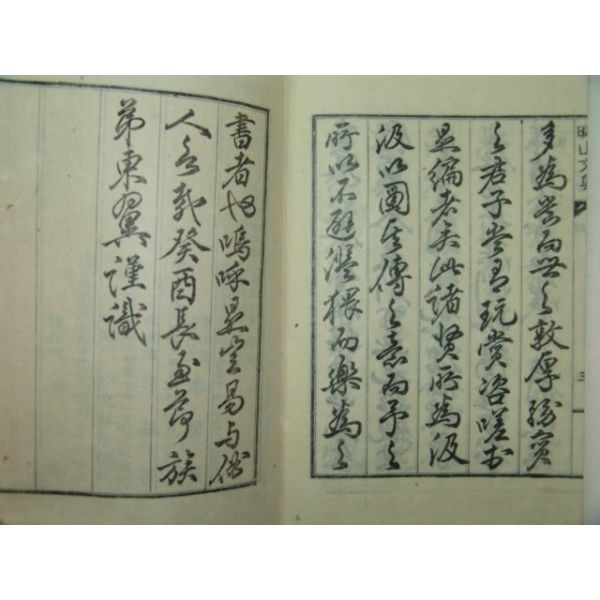 山文集
三
多爲而世之敦厚務實
之君子當有玩賞咨嗟於
是編者矣此諸賢所爲汲
汲以圖其傳之意而予之
所以不避濫猥而樂爲之
書者也嗚呼是豈易与俗
人言哉癸酉長至節族
弟東翼謹識